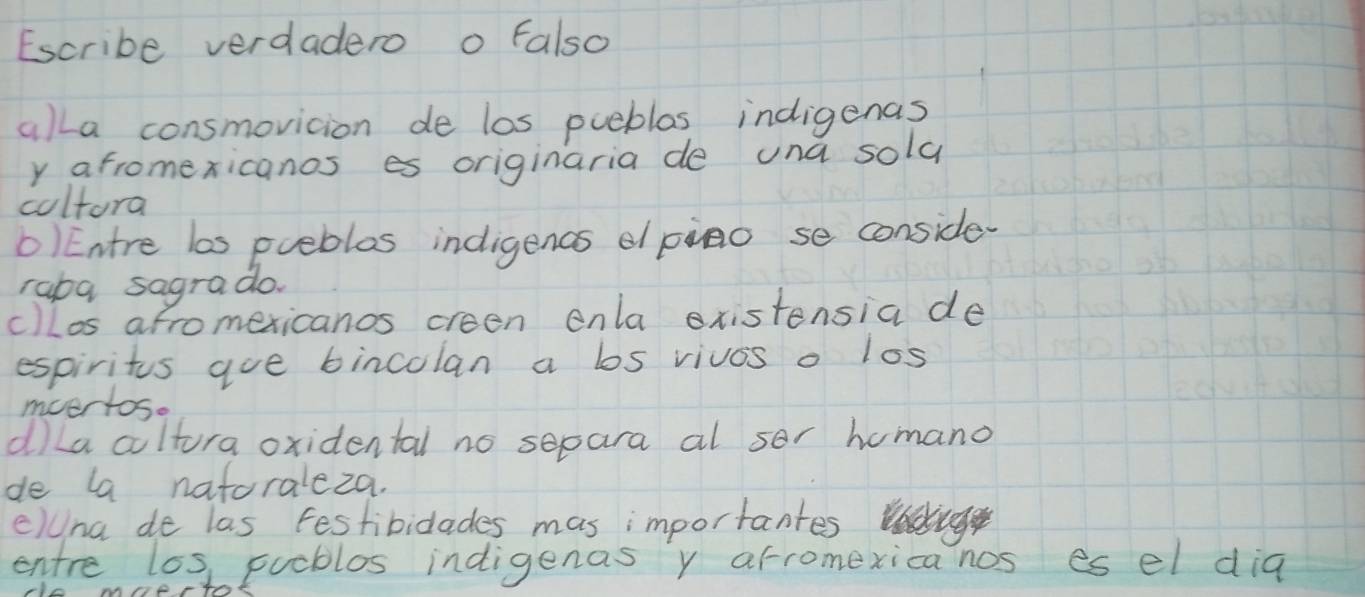 Escribe verdadero o Falso
a) La consmovicion de los pueblos indigenas
y afromexicanos es originaria de una sola
cultura
b) Entre los pueblos indigenas el pino se conside-
raba sagrado.
c) Los afromexicanos creen enla existensia de
espiritus que binculan a los vivos o los
muertos.
d) La cultura oxidental no separa al ser humano
de la naturaleza.
e) Una de las festibidades mas importantes
entre los pueblos indigenas y afromexicanos es el dia
de muertos